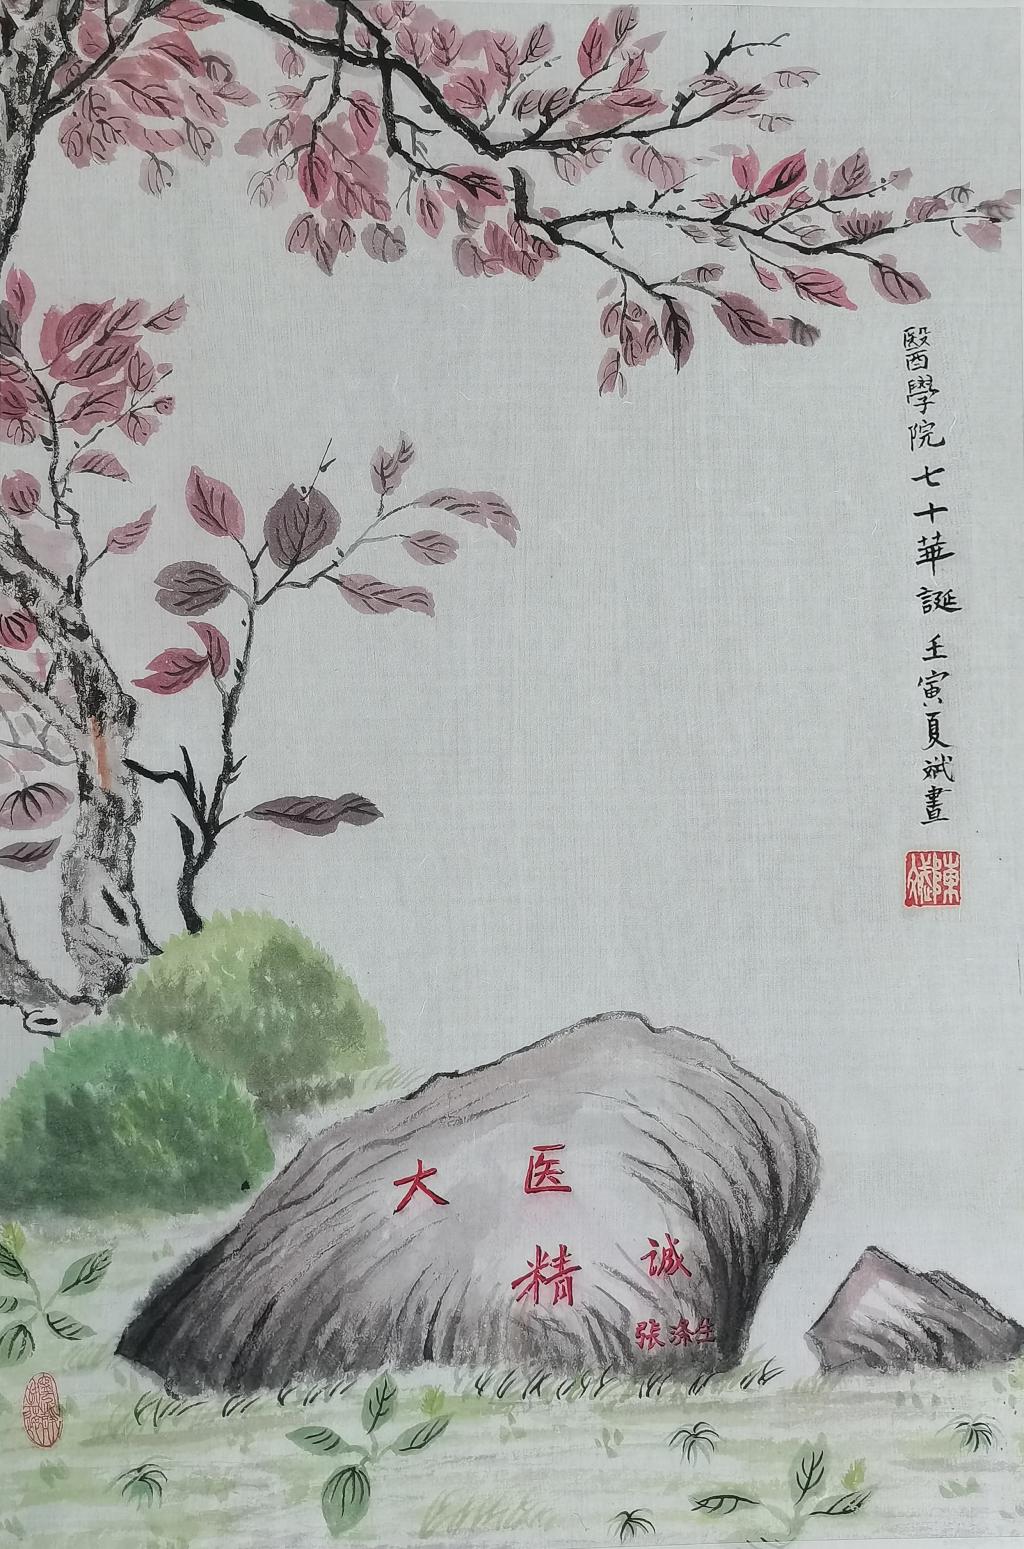 醫學院七十華誕 壬寅夏斌畫
陳斌
大医
精诚
张涤生